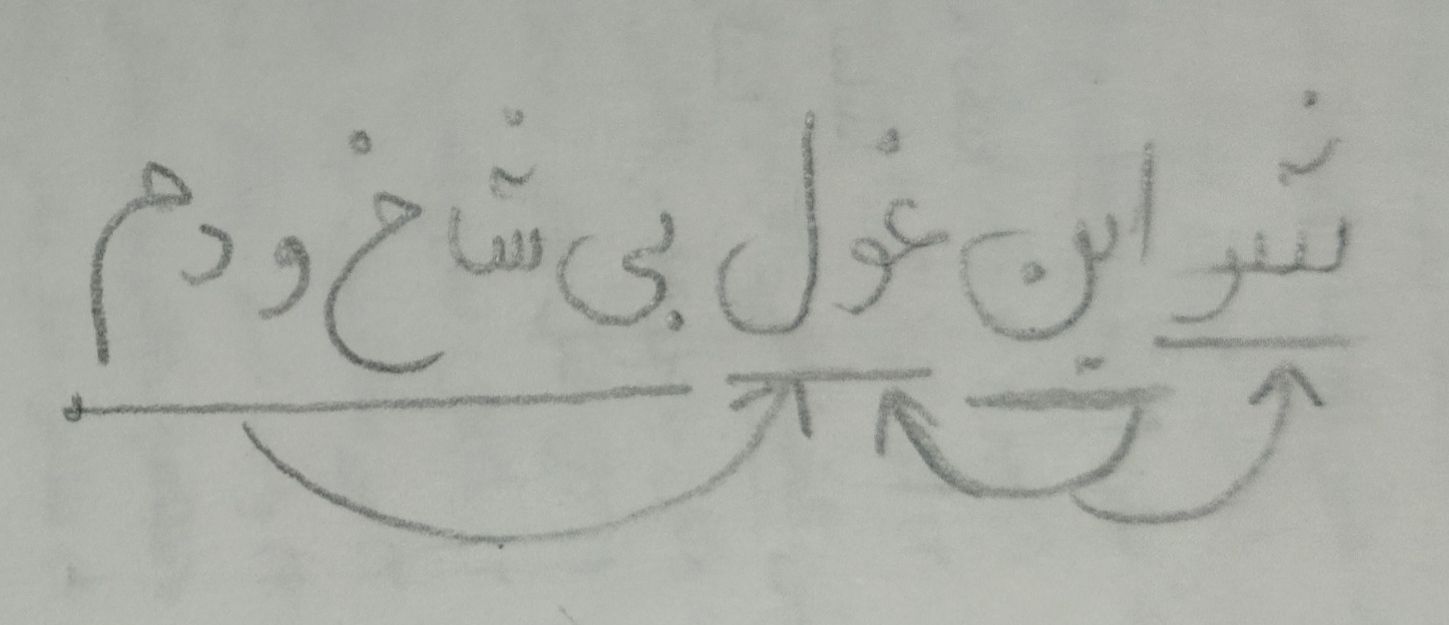 شر این غول بی شاخ و دم